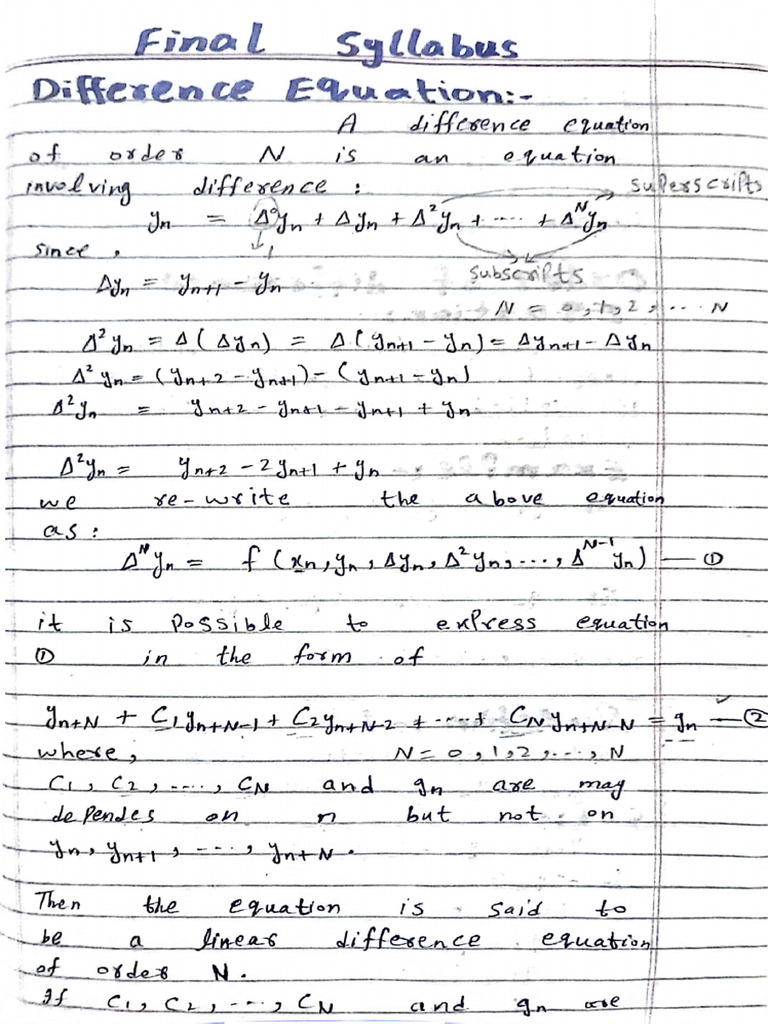 Final Syllabus
Difference Equation:-
A difference equation
of order N is an equation
involving difference : superscripts
yn = Δ⁰yn + Δyn + Δ²yn + ---- + Δᴺyn
since , 1
Δyn = yn+1 - yn subscripts
N = 0, 1, 2, ... N
Δ²yn = Δ(Δyn) = Δ(yn+1 - yn) = Δyn+1 - Δyn
Δ²yn = (yn+2 - yn+1) - (yn+1 - yn)
Δ²yn = yn+2 - yn+1 - yn+1 + yn
Δ²yn = yn+2 - 2yn+1 + yn
we re-write the above equation
as :
Δᴺyn = f(xn, yn, Δyn, Δ²yn, ..., Δᴺ⁻¹yn) — ①
it is possible to express equation
① in the form of
yn+N + C1yn+N-1 + C2yn+N-2 + ----+ CNyn+N-N = gn — ②
where, N = 0, 1, 2, ..., N
C1, C2, ----, CN and gn are may
dependes on n but not on
yn, yn+1, ----, yn+N.
Then the equation is said to
be a linear difference equation
of order N.
If C1, C2, ---, CN and gn are